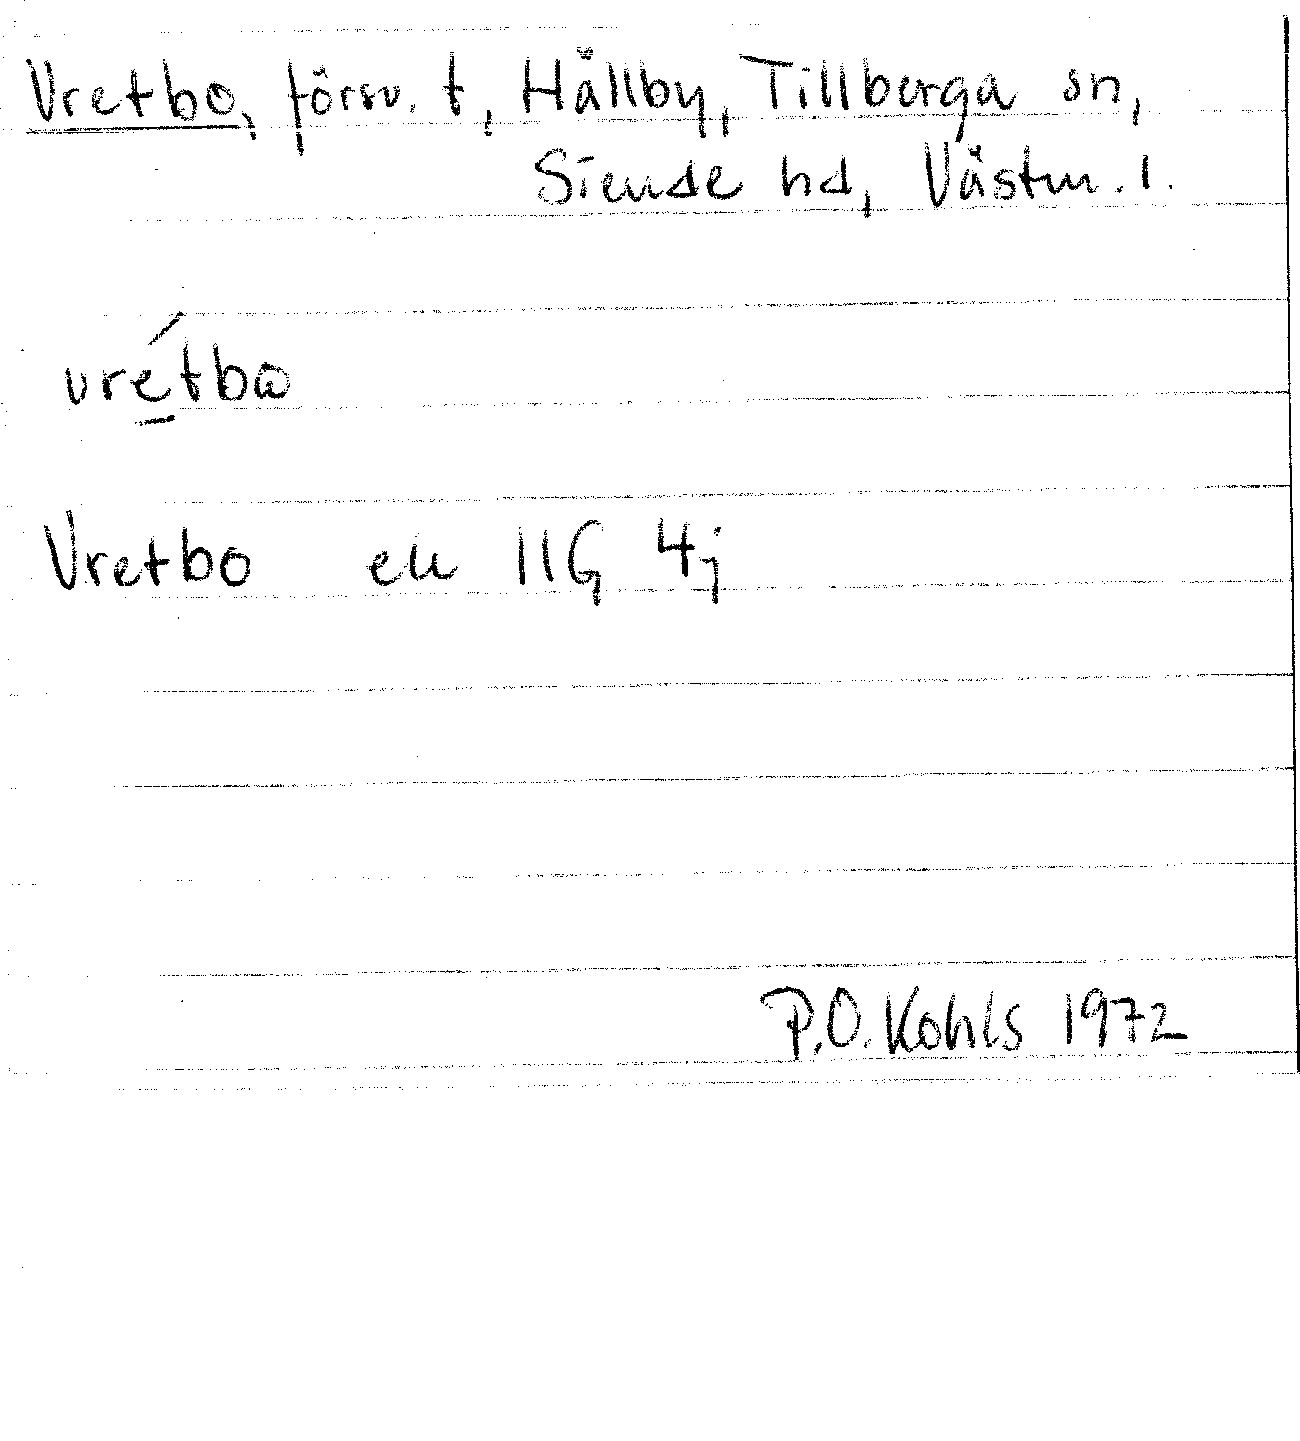 Vretbo, försv. t, Hållby, Tillberga sn,
Siende hd, Västm. l.
vrétbω
Vretbo ek 11G 4j
P.O. Kohls 1972